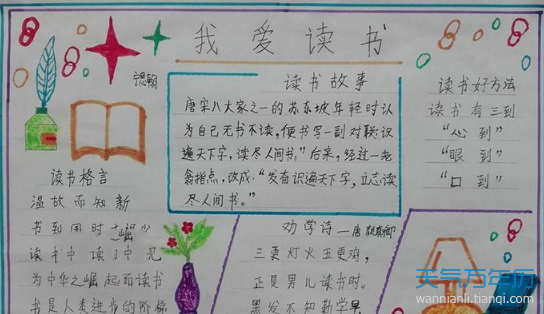 我爱读书
读书故事
唐宋八大家之一的苏东坡年轻时认
为自己无书不读,便书写一副对联:“识
遍天下字,读尽人间书。”后来,经过一老
翁指点,改成:“发奋识遍天下字,立志读
尽人间书。”
读书好方法
读书有三到
“心到”
“眼到”
“口到”
读书格言
温故而知新
书到用时
读书中读
为中华之崛起而读书
书是人类进步的阶梯
劝学诗—唐
三更灯火五更鸡,
正是男儿读书时。
黑发不知勤学早
天气万年历
wannianli.tianqi.com